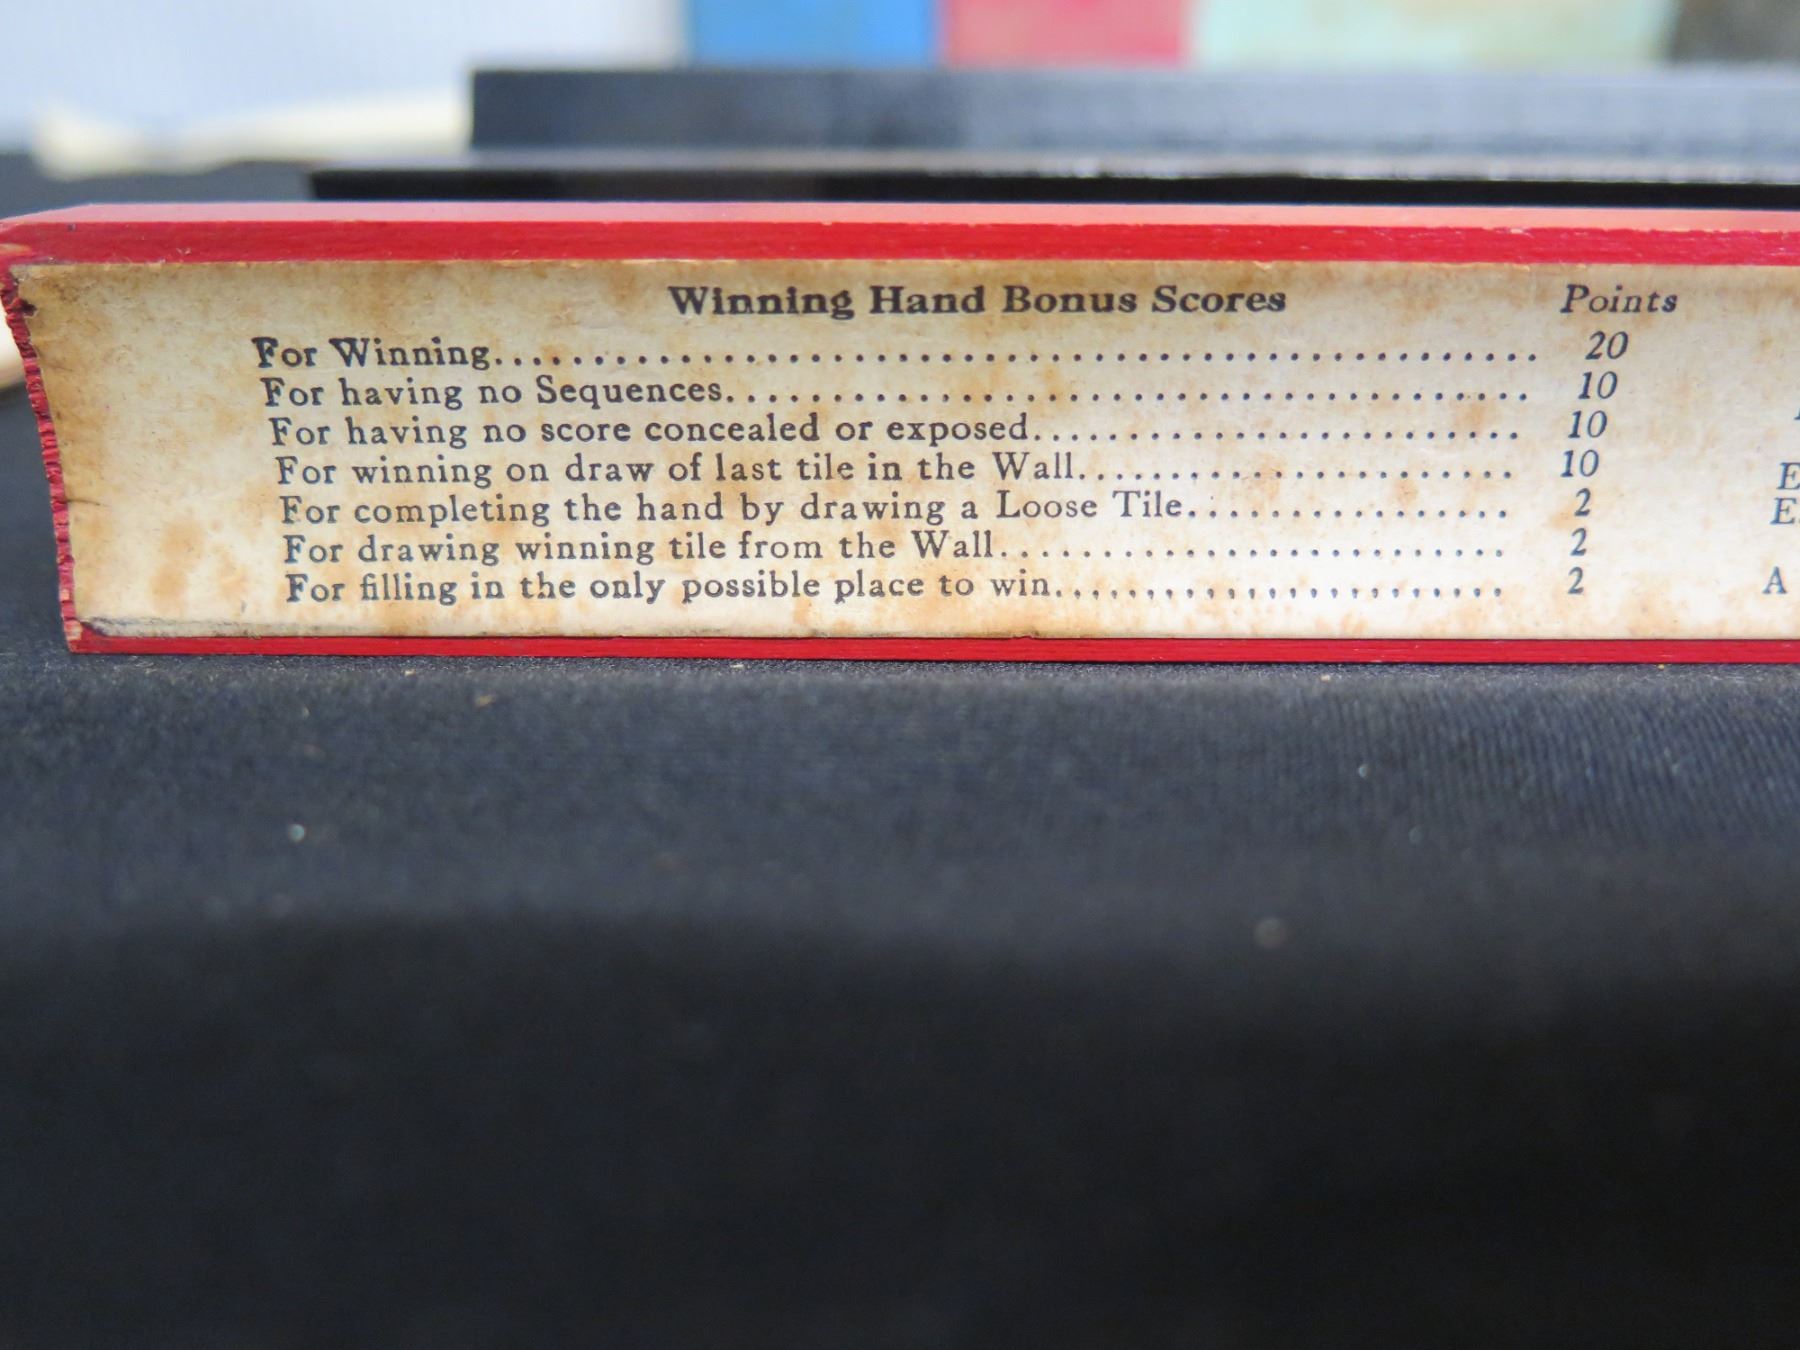 Winning Hand Bonus Scores Points
For Winning.................................................. 20
For having no Sequences........................................ 10
For having no score concealed or exposed......................... 10
For winning on draw of last tile in the Wall...................... 10
For completing the hand by drawing a Loose Tile................. 2
For drawing winning tile from the Wall.......................... 2
For filling in the only possible place to win....................... 2
A